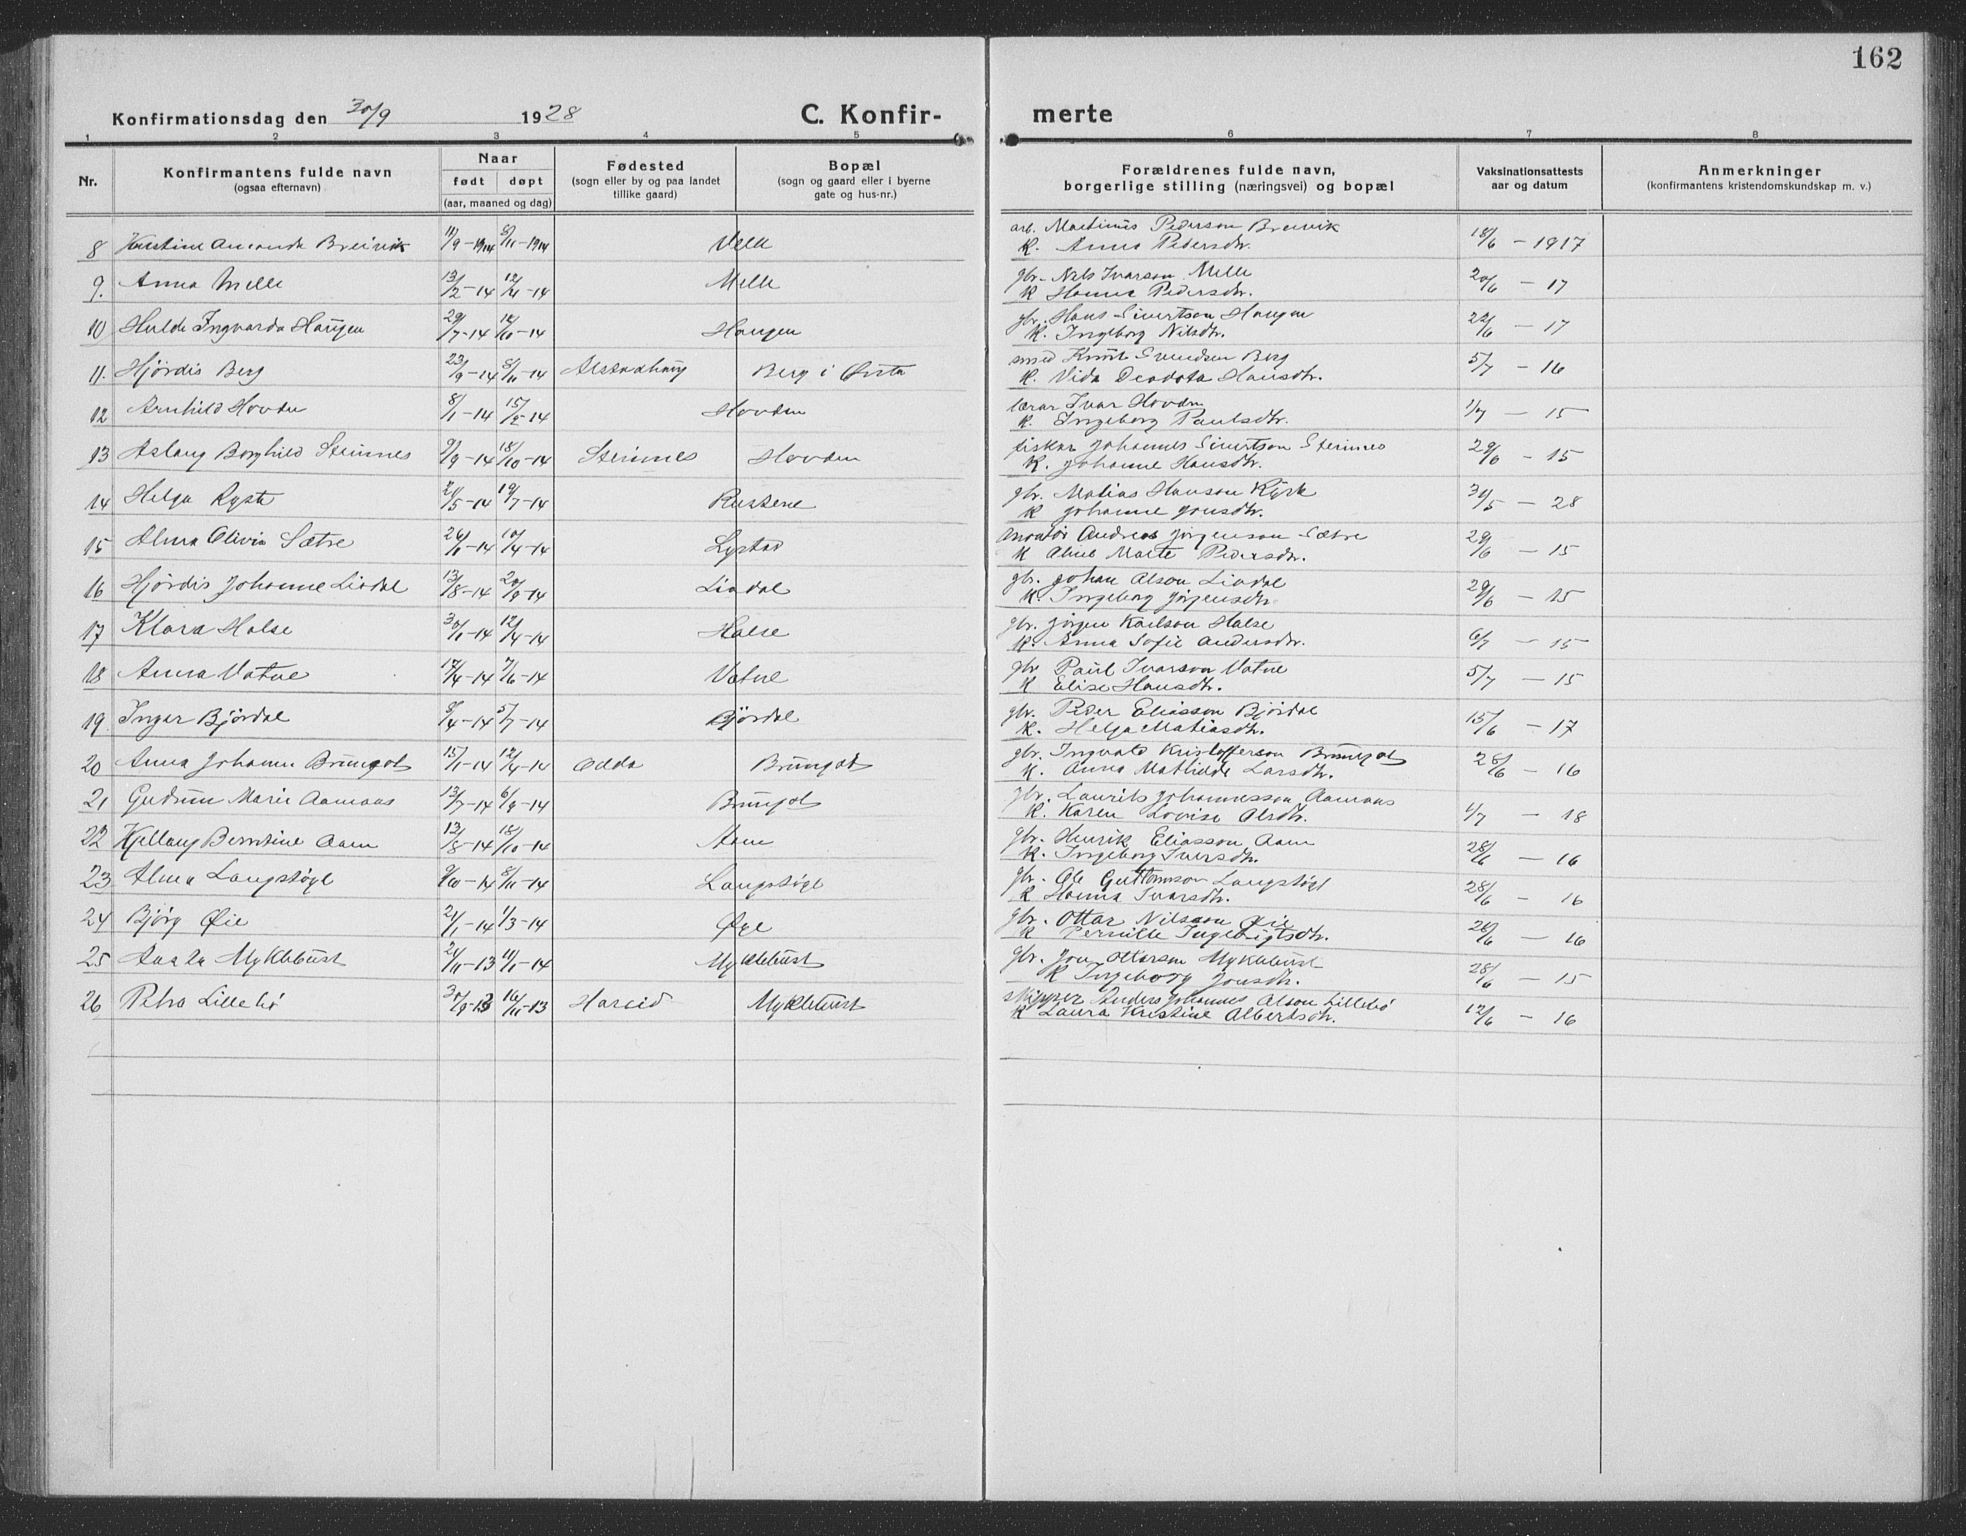 162
Konfirmationsdag den 30/9 1928 C. Konfir- merte
1 2 3 4 5 6 7 8
Nr. Konfirmantens fulde navn (ogsaa efternavn) Naar født døpt (aar, maaned og dag) Fødested (sogn eller by og paa landet tillike gaard) Bopæl (sogn og gaard eller i byerne gate og hus-nr.) Forældrenes fulde navn, borgerlige stilling (næringsvei) og bopæl Vaksinationsattests aar og datum Anmerkninger (konfirmantens kristendomskundskap m. v.)
8 Kristine Amanda Breivik 11/9-1914 8/11-1914 Velle arb. Martinus Pederson Breivik
K. Anna Pedersdtr. 18/6 - 1917
9. Anna Melle 13/2-14 12/4-14 Melle gbr. Nils Ivarson Melle
K Hanna Pedersdtr. 20/6 - 17
10 Hulda Ingvarda Haugen 29/7-14 Haugen gbr. Hans Sivertson Haugen
K. Ingeborg Nilsdtr. 22/6 - 17
11. Hjördis Berg 23/9-14 8/11-14 Alstadhaug Berg i Ørsta smed Knut Svendsen Berg
K. Vida Deodata Hansdtr. 5/7 - 16
12 Arnhild Hovden 8/1-14 15/2-14 Hovden lærar Ivar Hovden
K. Ingeborg Paulsdtr. 1/7 - 15
13 Aslaug Borghild Steinnes 9/9-14 18/10-14 Steinnes Hovden fiskar Johannes Sivertson Steinnes
K. Johanne Hansdtr. 29/6 - 15
14 Helga Ryste 21/5-14 19/7-14 Rustene gbr. Matias Hanson
K Johanne Jonsdtr. 31/5 - 28
15 Alma Olivia Sætre 10/4-14 Lystad Andreas Jörgenson Sætre
K Marte Pedersdtr. 29/6 - 15
16 Hjördis Johanne Liadal 13/8-14 20/9-14 Liadal gbr. Johan Olson Liadal
K. Ingeborg Jörgensdtr. 29/6 - 15
17 Klara Halse 30/1-14 12/4-14 Halse gbr. Jörgen Karlson Halse
K. Anna Sofie Andersdtr. 6/7 - 15
18 Anna Vatne 17/4-14 7/6-14 Vatne gbr Paul Ivarson Vatne
K Elise Hansdtr. 5/7 - 15
19 Inga Björdal 8/4-14 5/7-14 Björdal gbr. Peder Eliasson Björdal
K. Helga Matiasdtr. 15/6 - 17
20 Anna Johanne Brungot 15/1-14 12/4-14 Odda Brungot gbr. Ingvald Kristofferson Brungot
K. Anna Mathilde Larsdtr. 28/6 - 16
21 Gudrun Marie Aamaas 13/7-14 6/9-14 Brungot gbr. Laurits Johannesson Aamaas
K. Karen Lovise Olsdtr. 1/7 - 18
22 Kjellaug Berntine Aam 13/8-14 18/10-14 Aam gbr. Henrik Eliasson Aam
K. Ingeborg Iversdtr. 28/6 - 16
23 Alma Langstøyl 9/10-14 8/11-14 Langstøyl gbr. Ole Guttormson Langstøyl
K Hanna Ivarsdtr. 28/6 - 16
24 Bjørg Øie 21/1-14 1/3-14 Øye gbr. Ottar Nilsson Øie
K Pernille Ingebrigtsdtr. 26/6 - 16
25 Aasta Myklebust 24/11-13 11/1-14 Myklebust gbr. Jon Ottarson Myklebust
K Ingeborg Jonsdtr. 28/6 - 15
26 Petra Lillebø 30/9-13 16/11-13 Hareid Myklebust skipper Anders Johannes Olson Lillebø
K Laura Kristine Albertsdtr. 12/6 - 16